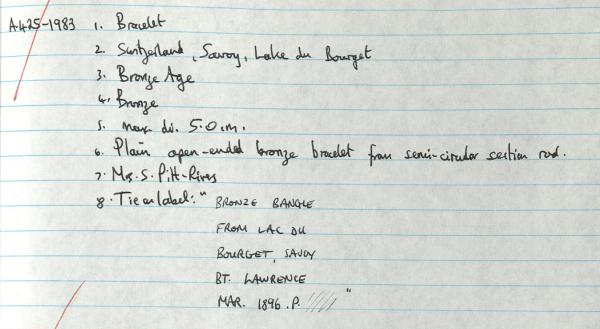 A.425-1983 1. Bracelet
2. Switzerland, Savoy, Lake du Bourget
3. Bronze Age
4. Bronze
5. max. di. 5.0cm.
6. Plain open-ended bronze bracelet from semi-circular section rod.
7. Mrs. S. Pitt-Rivers
8. Tie on label: "BRONZE BANGLE
FROM LAC DU
BOURGET, SAVOY
BT. LAWRENCE
MAR. 1896. P. ///// "